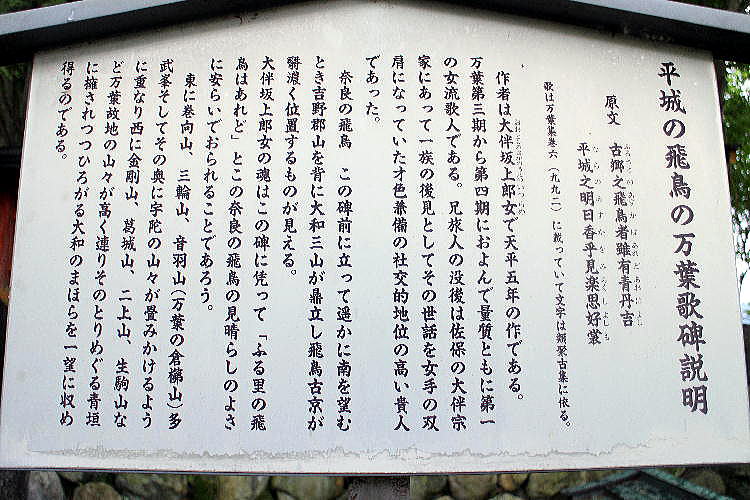 平城の飛鳥の万葉歌碑説明
原文　古郷之飛鳥者雖有青丹吉
平城之明日香乎見楽思好裳
歌は万葉集巻六（九九二）に載っていて文字は類聚古集に依る。
作者は大伴坂上郎女で天平五年の作である。
万葉第三期から第四期におよんで量質ともに第一
の女流歌人である。兄旅人の没後は佐保の大伴宗
家にあって一族の後見としてその世話を女手の双
肩になっていた才色兼備の社交的地位の高い貴人
であった。
奈良の飛鳥　この碑前に立って遥かに南を望む
とき吉野郡山を背に大和三山が鼎立し飛鳥古京が
翳濃く位置するものが見える。
大伴坂上郎女の魂はこの碑に凭って「ふる里の飛
鳥はあれど」とこの奈良の飛鳥の見晴らしのよさ
に安らいでおられることであろう。
東に巻向山、三輪山、音羽山（万葉の倉椅山）多
武峯そしてその奥に宇陀の山々が畳みかけるよう
に重なり西に金剛山、葛城山、二上山、生駒山な
ど万葉故地の山々が高く連りそのとりめぐる青垣
に擁されつつひろがる大和のまほらを一望に収め
得るのである。